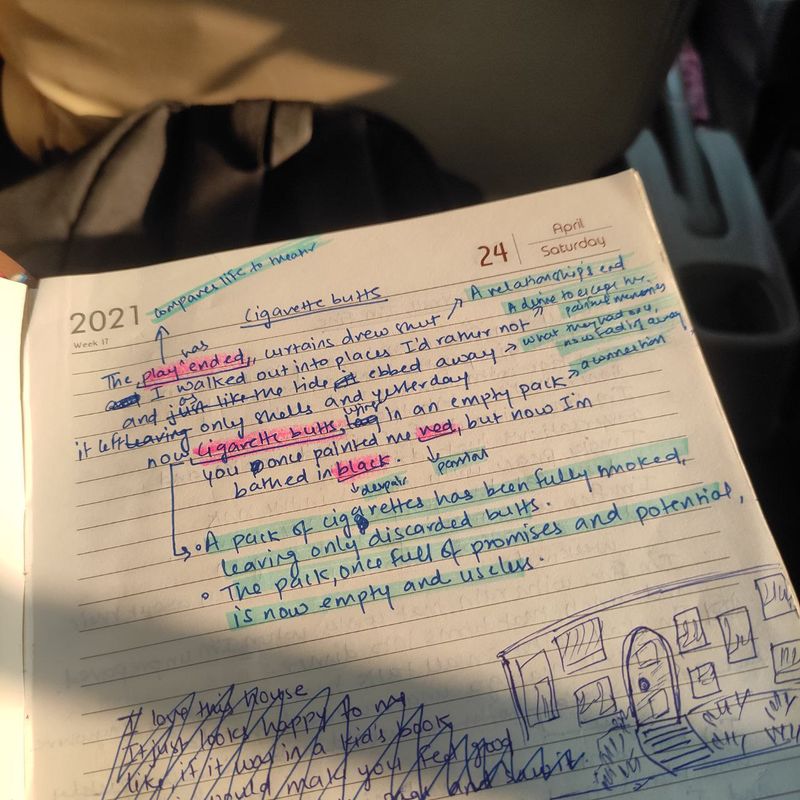 24
April
Saturday
2021
Week 17
compares life to theatre
Cigarette butts
A relationships end
The play has ended, curtains drew shut
A desire to escape her
painful memories
I walked out into places I'd rather not
what they had was,
now fading away
and as like the tide ebbed away
a connection
it left only smells and yesterday
now cigarette butts, lying in an empty pack
you once painted me red, but now I'm
bathed in black.
despair
passion
• A pack of cigarettes has been fully smoked,
leaving only discarded butts.
• The pack, once full of promises and potential,
is now empty and useless.
I love this house
It just looks happy to me
like, if it was in a kid's book
would make you feel good